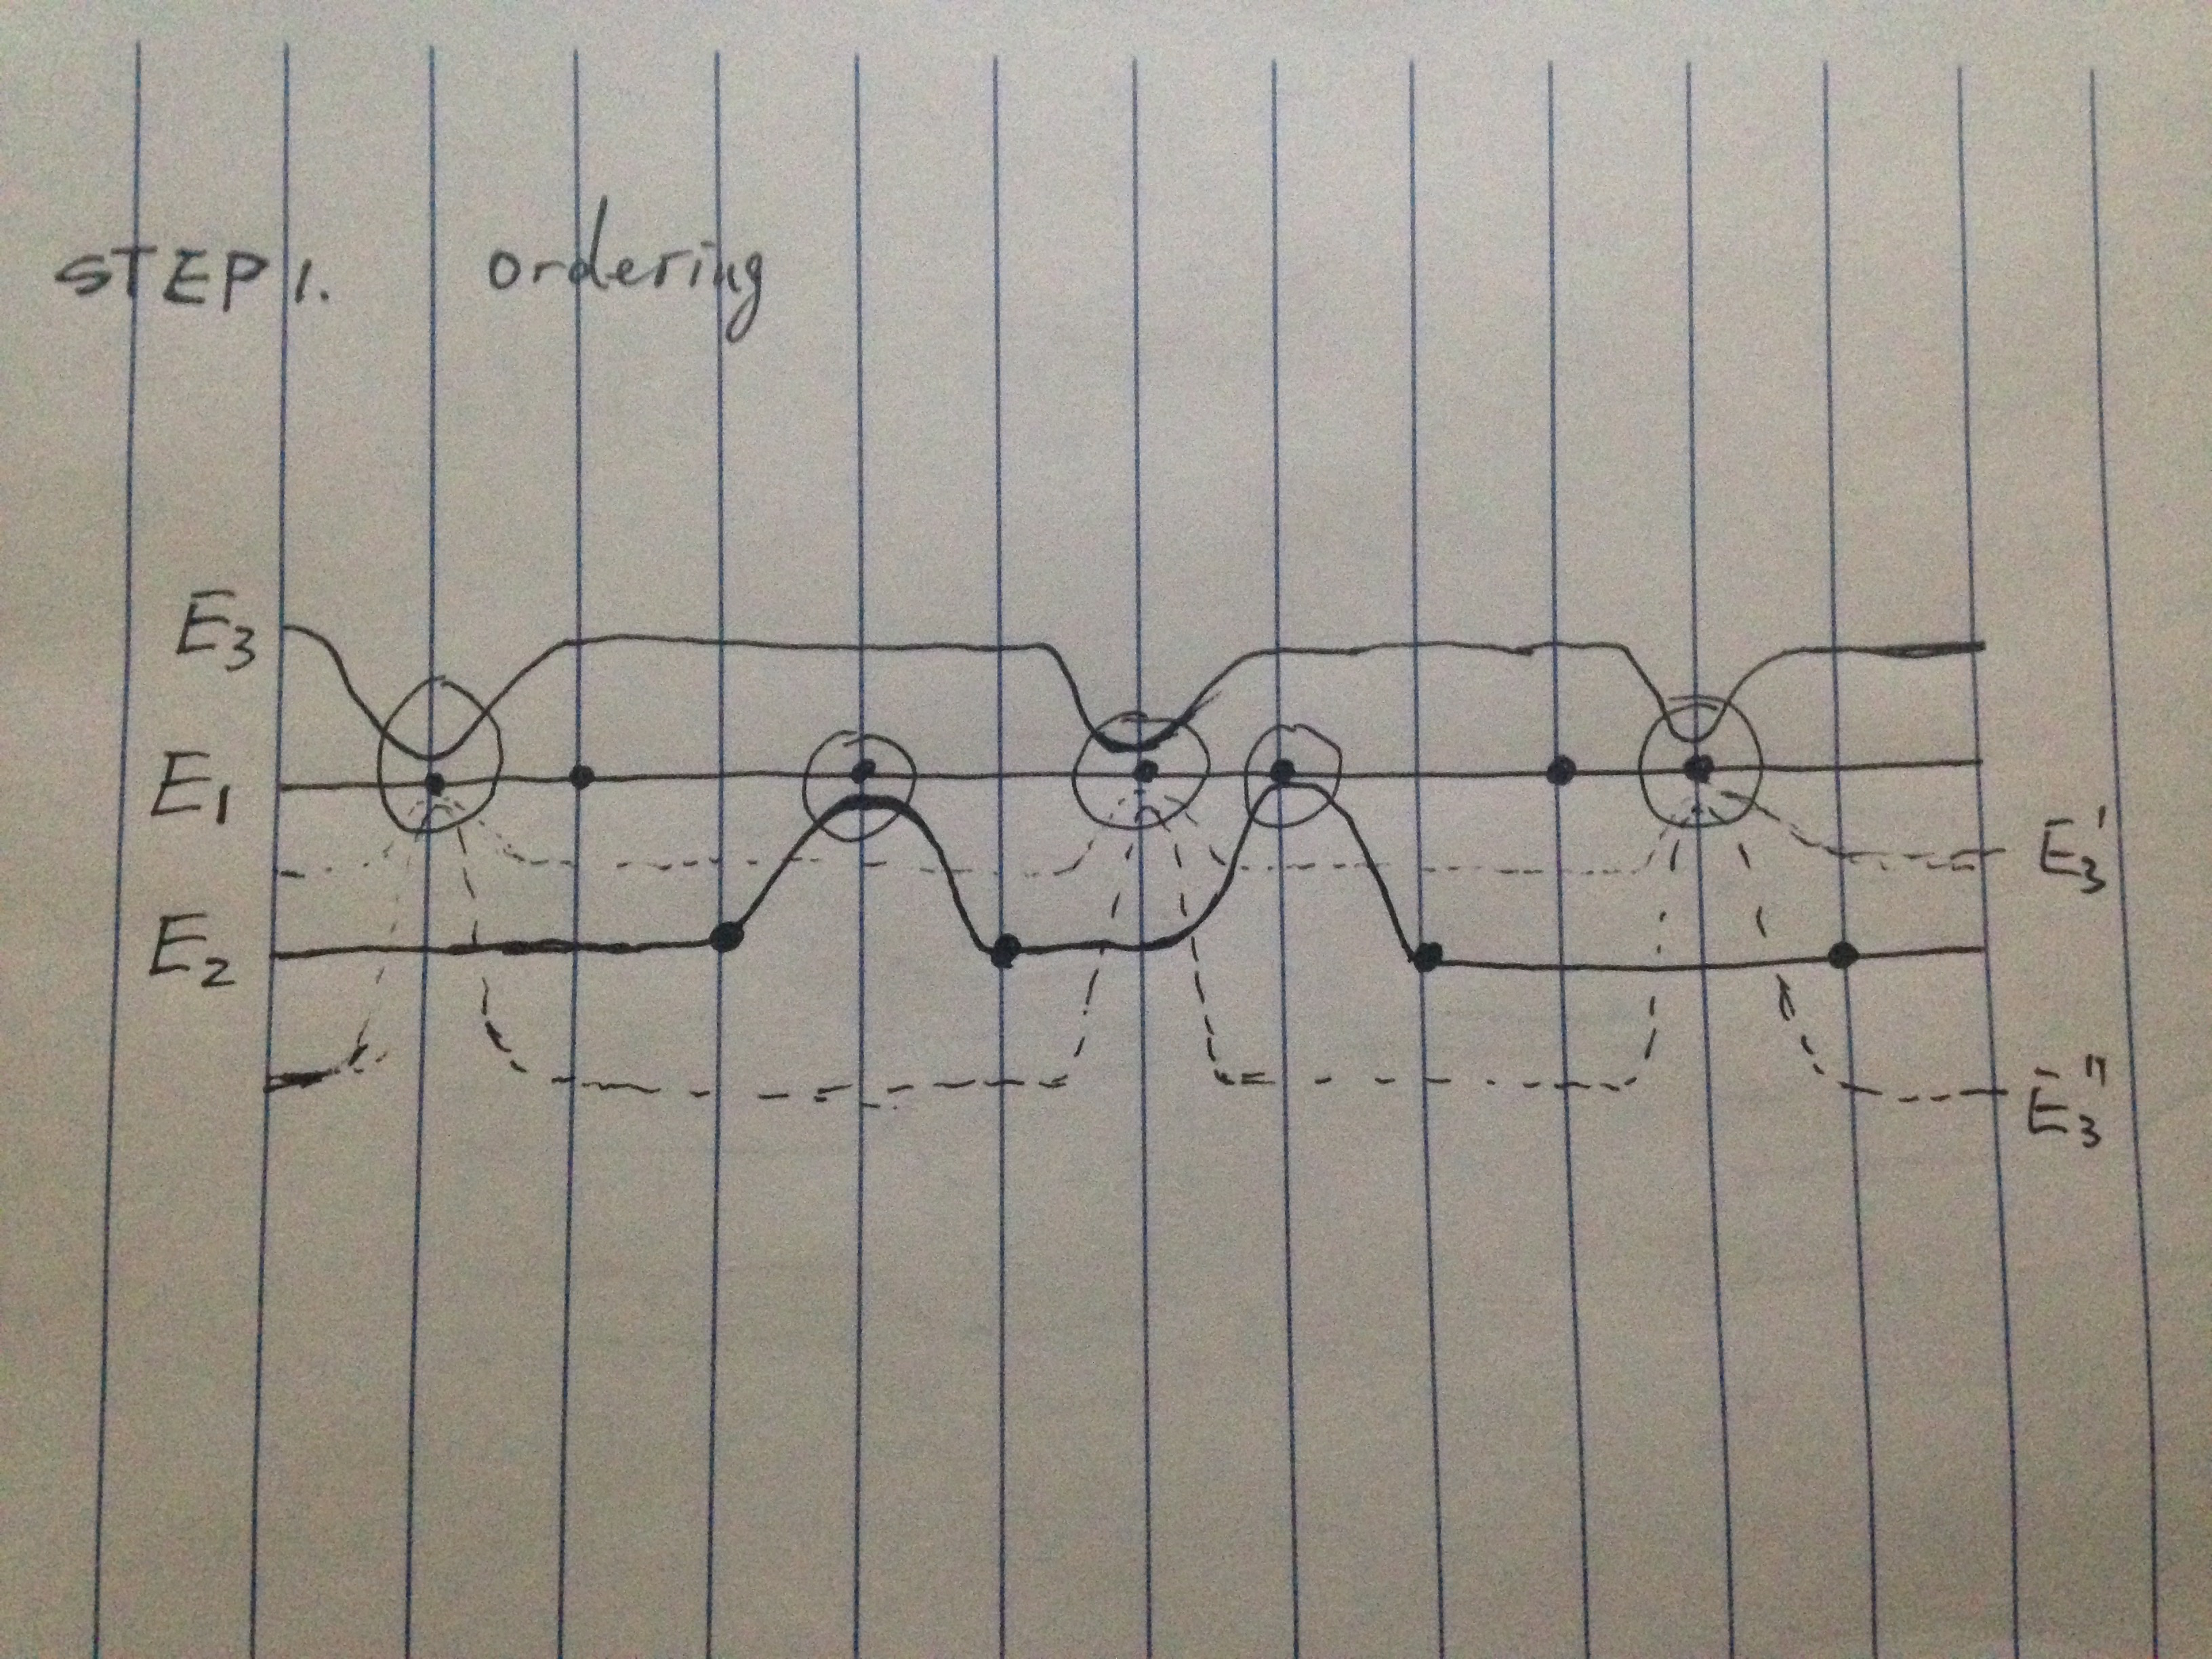 STEP 1. ordering
E₃
E₁
E₃'
E₂
E₃''